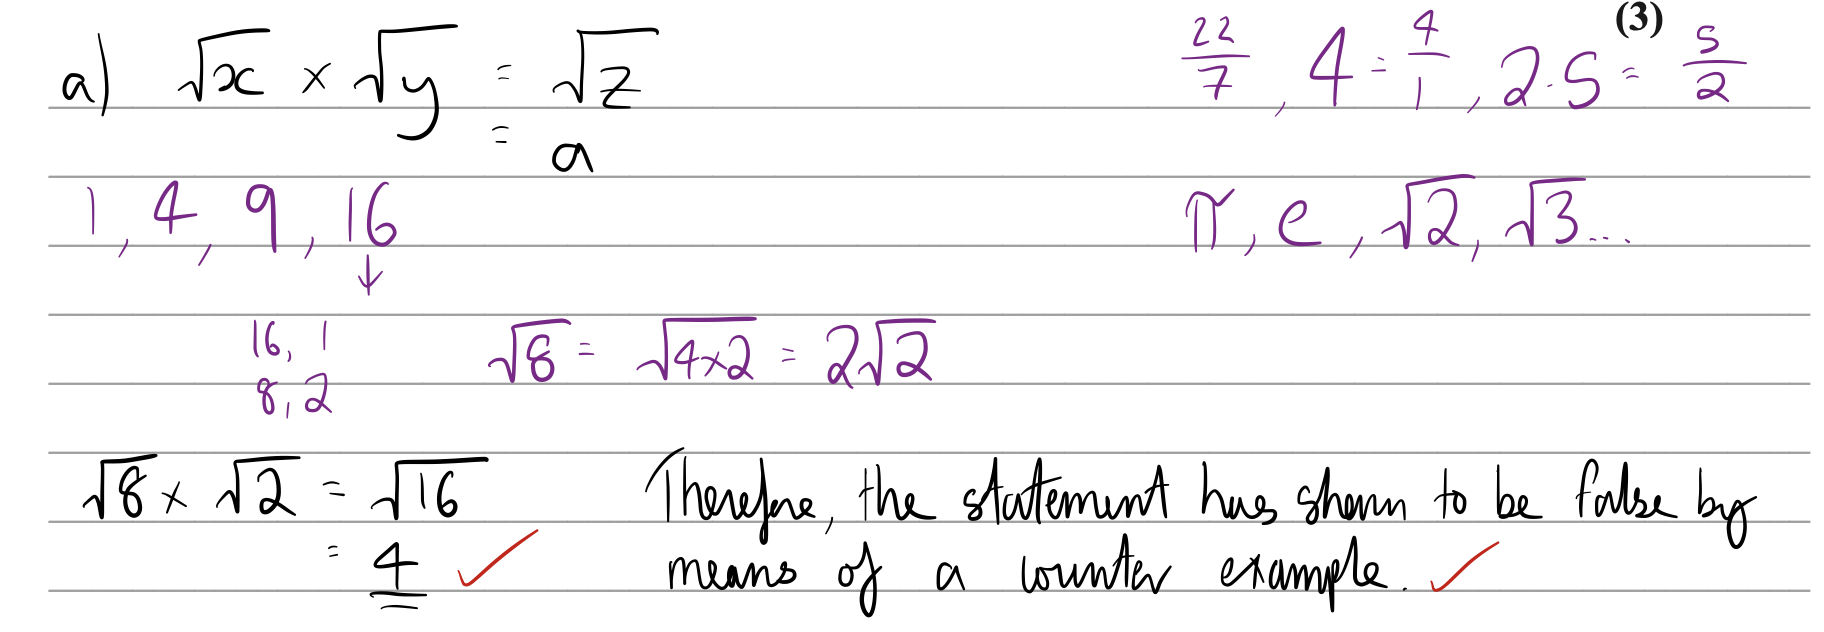 (3)
a) √x × √y = √z
= a
22/7, 4 = 4/1, 2.5 = 5/2
1, 4, 9, 16
↓
π, e, √2, √3...
16, 1
8, 2
√8 = √4×2 = 2√2
√8 × √2 = √16
= 4 ✓
Therefore, the statement has shown to be false by
means of a counter example. ✓